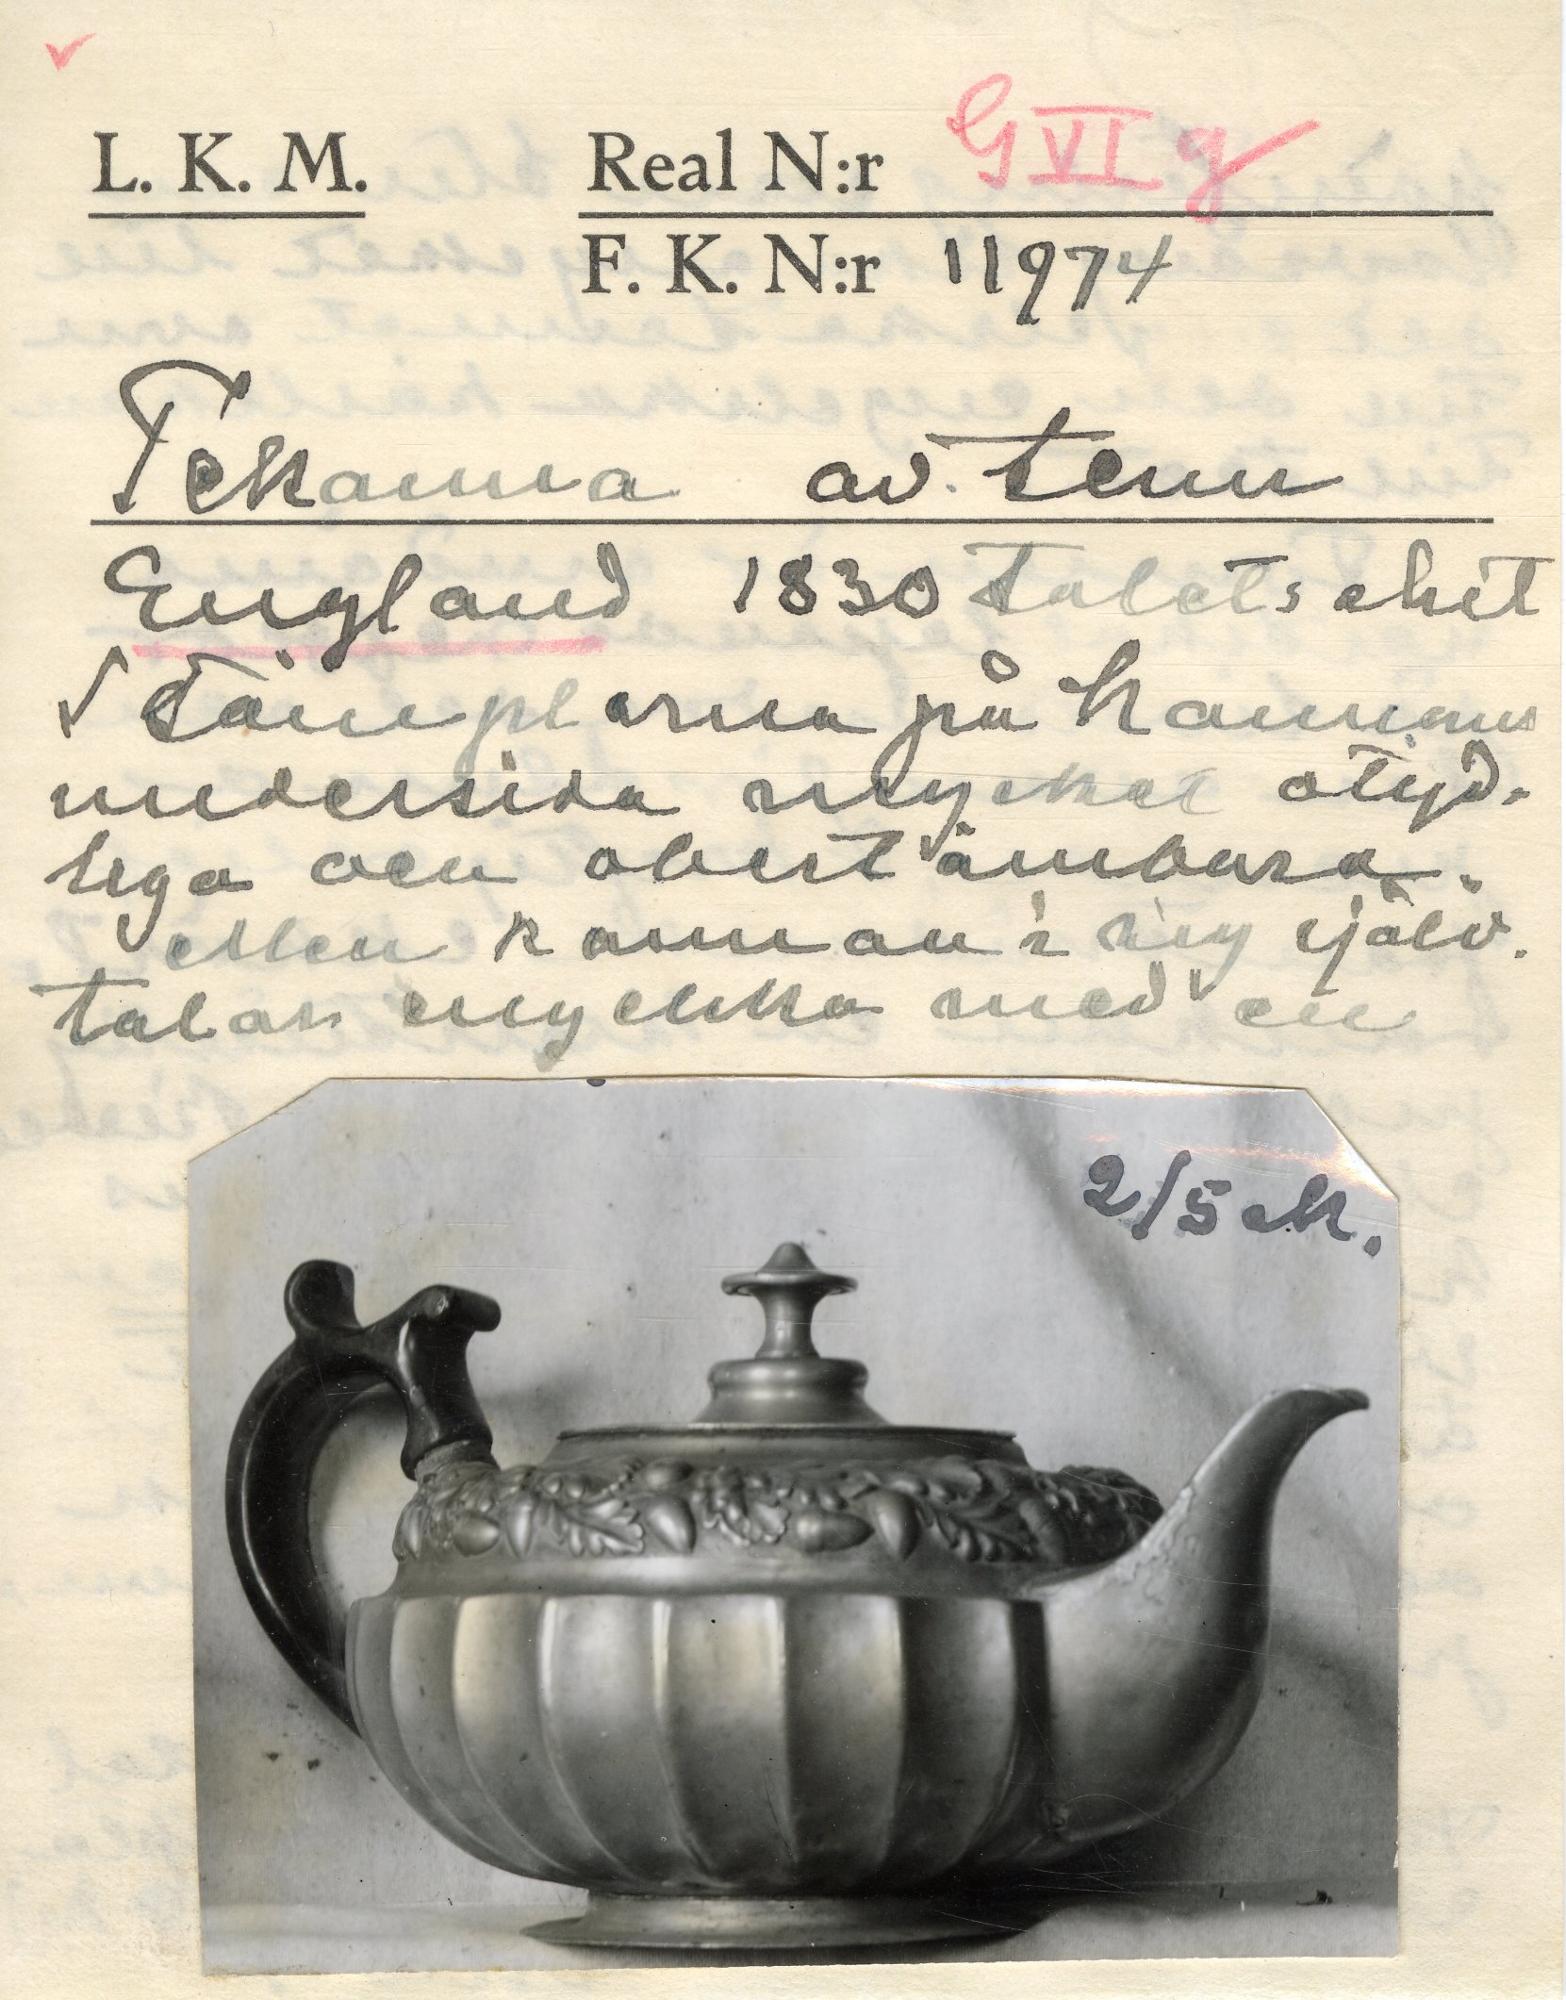 L. K. M. Real N:r G VI g
F. K. N:r 11974
Tekanna av tenn
England 1830 talets
Stämplarna på kannans
undersida mycket otyd-
liga och obestämbara.
Men kannan i sig själv
talar mycket med en
2/5 M.